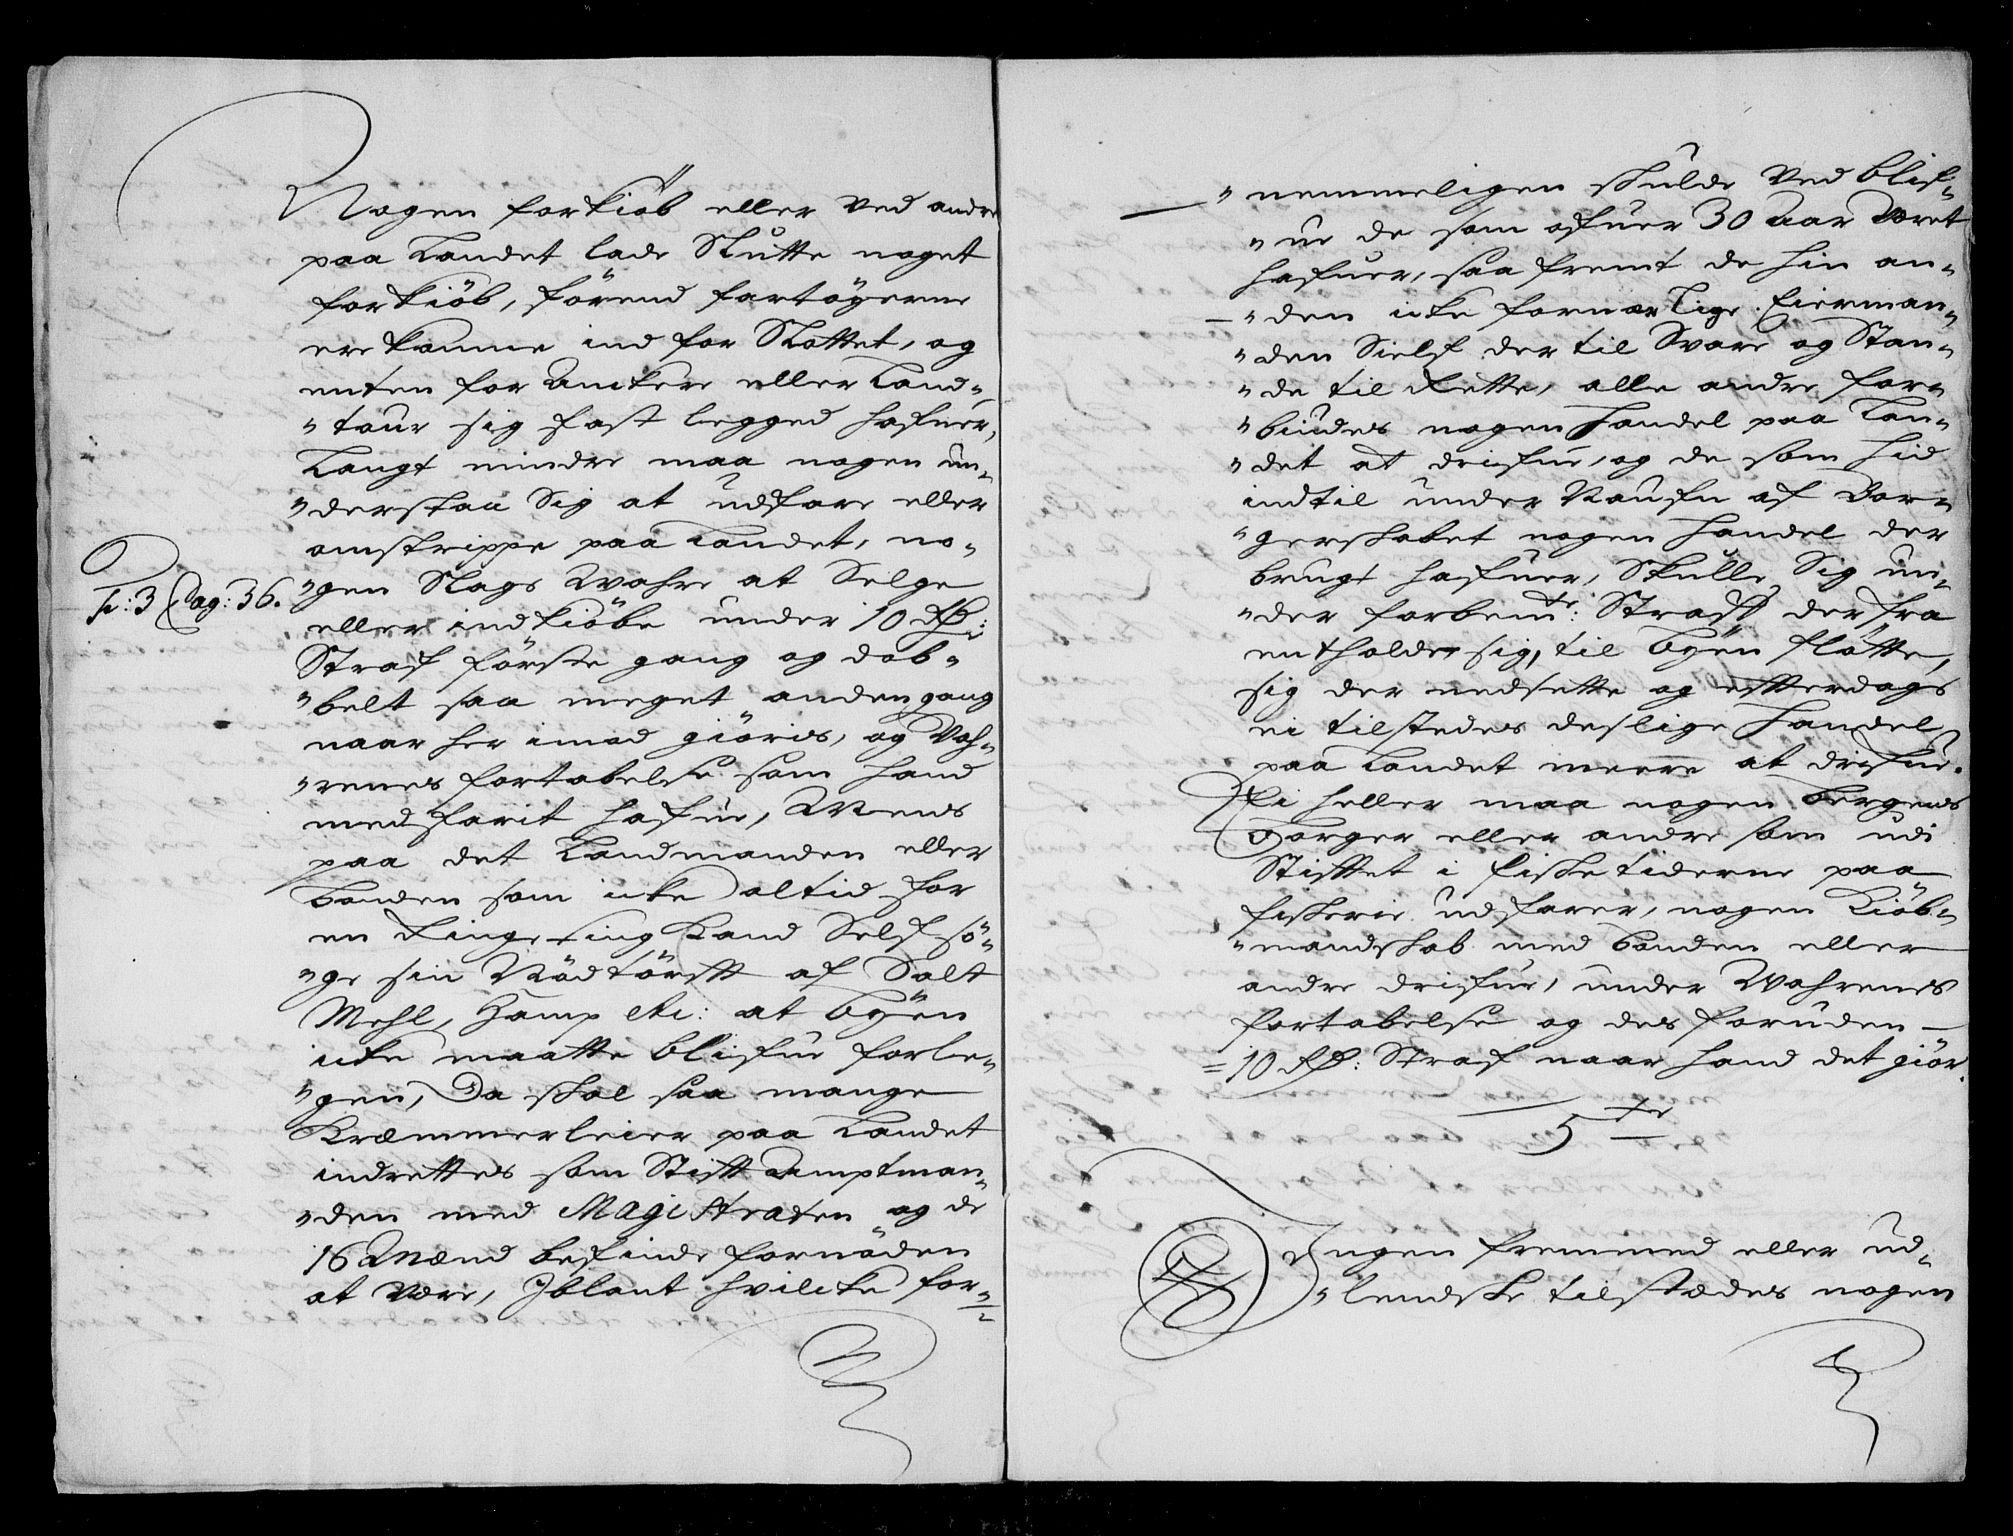 Nogen forkiöb eller ved andre
paa Landet lade Slutte noget
forkiöb, förend fartöyerne
ere komne ind for Slottet, og
enten for Anckere eller Land-
"touu sig fast legged hafuer,
Langt mindre maa nogen un-
"derstaa Sig at udfare eller
omstrippe paa Landet, no-
"gen Slags Wahre at Selge
eller indkiöbe under 10 Rd:
Straf förste gang og dob-
"belt saa meget anden gang
naar her imod giöris, og Vah-
"renes fortabelse som hand
med farit hafue, Mens
paa det Landmanden eller
bonden som icke altid for
en Ringe ting Kand Self sö-
"ge sin Nödtörfft af Salt
Mehl, Hamp etc: at byen
icke maatte blifue forle-
"gen, Da skal saa mange
Kræmmerleier paa Landet
indrettes som Stifft Amptman-
"den med Magistraten og de
16 Mænd befinde fornöden
at Være, Iblant hvilcke for-
P: 3 Pag: 36.
"nemmeligen skulde Ved blif-
"ue de som ofuer 30 Aar Været
hafuer, saa fremt de hin an-
"den icke for nær Lige. Eierman-
"den Sielf der til Svare og Stan-
"de til Rette, alle andre for-
"bindes nogen Handel paa Lan-
"det at drifue, og de som hid
indtil under Naufn af Bor-
"gerskabet nogen Handel der
brugt hafuer, Skulle Sig un-
"der forbemte: Straff der fra
entholde sig, til byen flötte,
sig der nedsette og effterdags
ei tilstedes deslige Handel
paa Landet meere at drifue.
Ei heller maa nogen Bergens
Borger eller andre som udi
Stifftet i fiske tiderne paa
fiskerie udfarer, nogen Kiöb-
"mandskab med bonden eller
andre drifue, under Wahrenes
fortabelse og des foruden
10 Rd: Straf naar hand det giör.
5te
Ingen fremmed eller ud-
"lendske tilstædes nogen